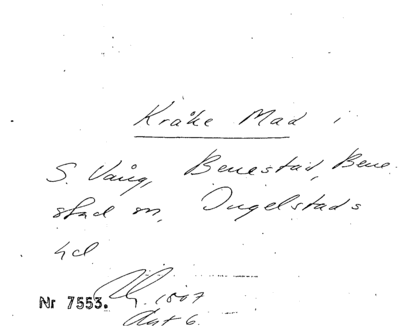 Kråke Mad i
S. Vång, Benestad, Bene
stad sn, Ingelstads
hd
Nr 7553. 1807
Akt 6.